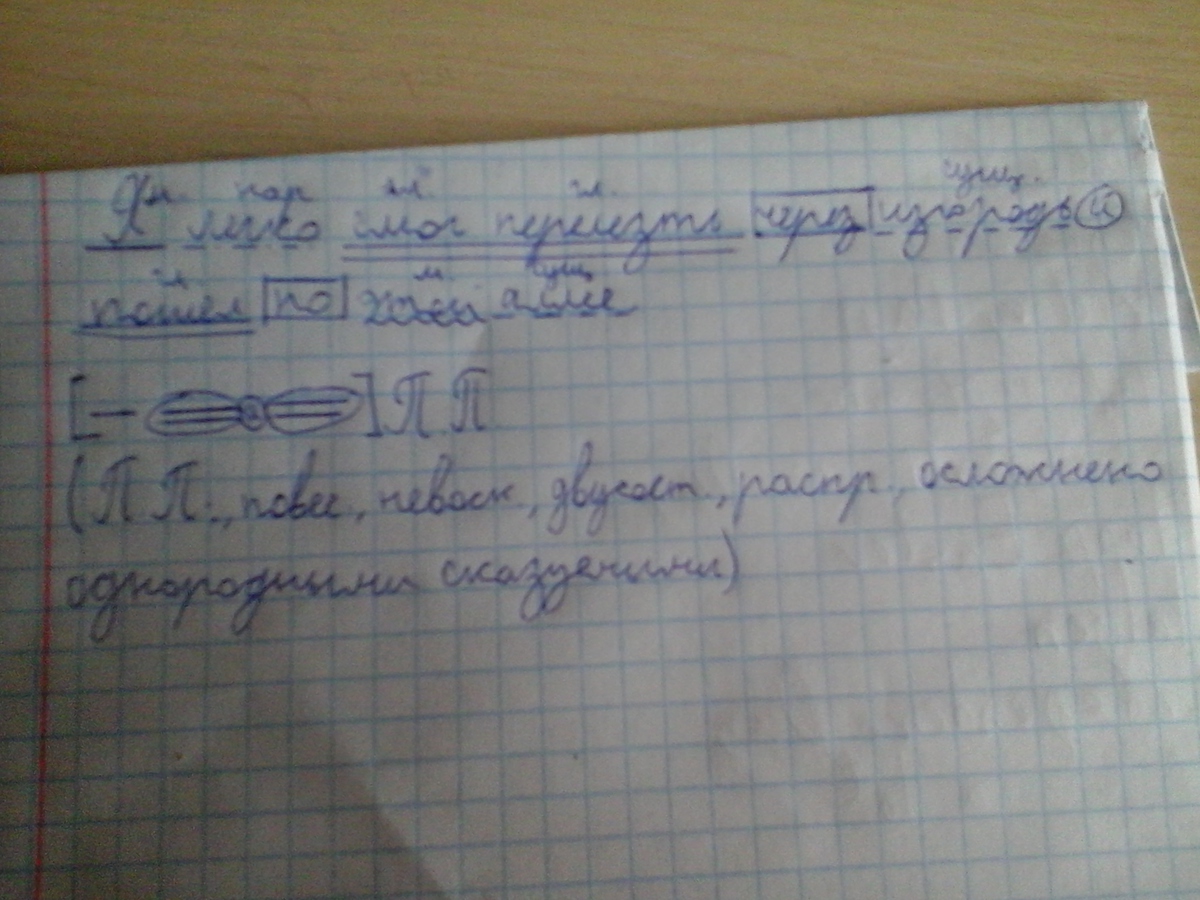 м. нар гл гл. сущ.
Я легко смог перелезть через изгородь и
гл м. сущ
пошел по аллее
[— =и=] ПП
(ПП., повес, невоск, двусост., распр., осложнено
однородными сказуемыми)